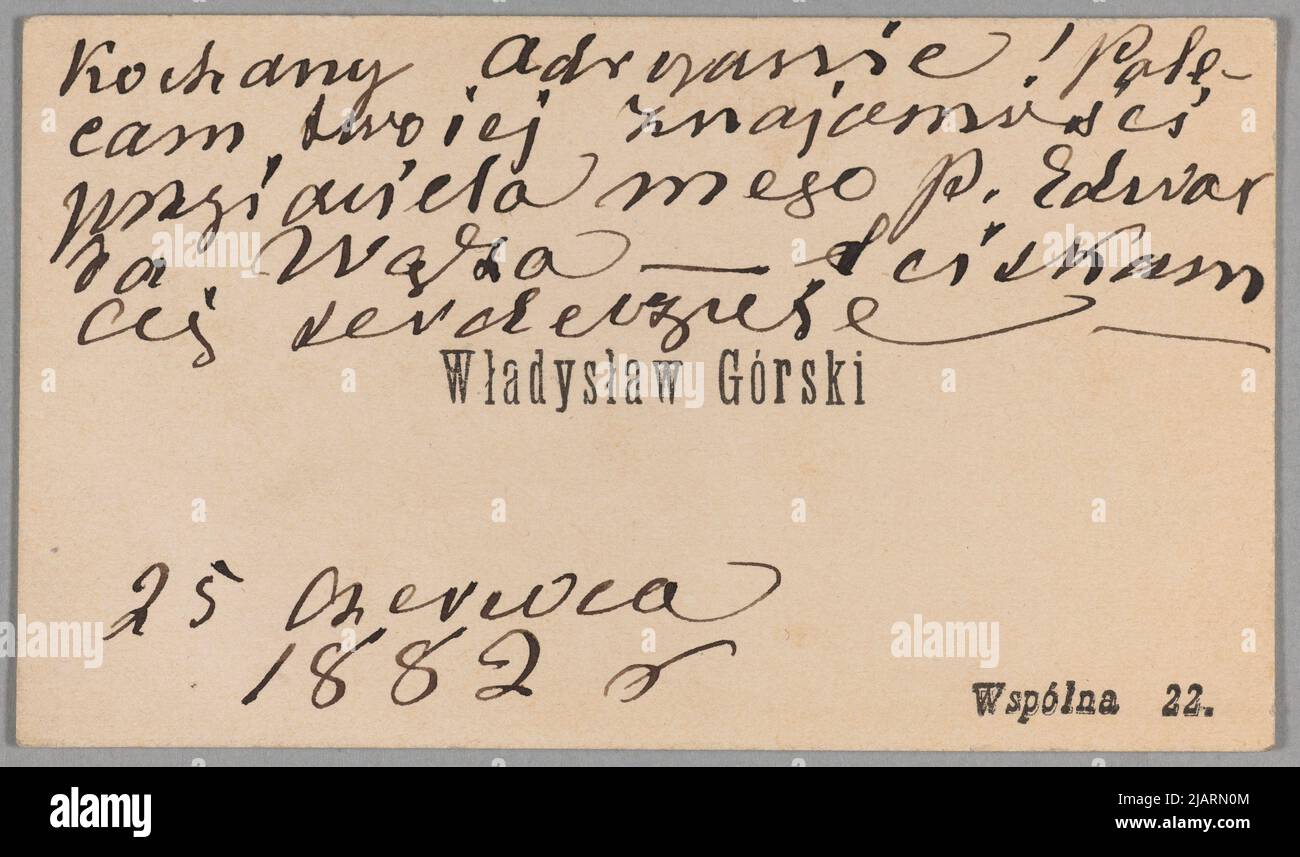 Kochany Adryanie! Pole-
cam twojej znajomości
przyjaciela mego P. Edwar
da Wąża — Ściskam
Cię serdecznie —
Władysław Górski
25 Czerwca
1882 r
Wspólna 22.
alamy
Image ID: 2JARN0M
www.alamy.com